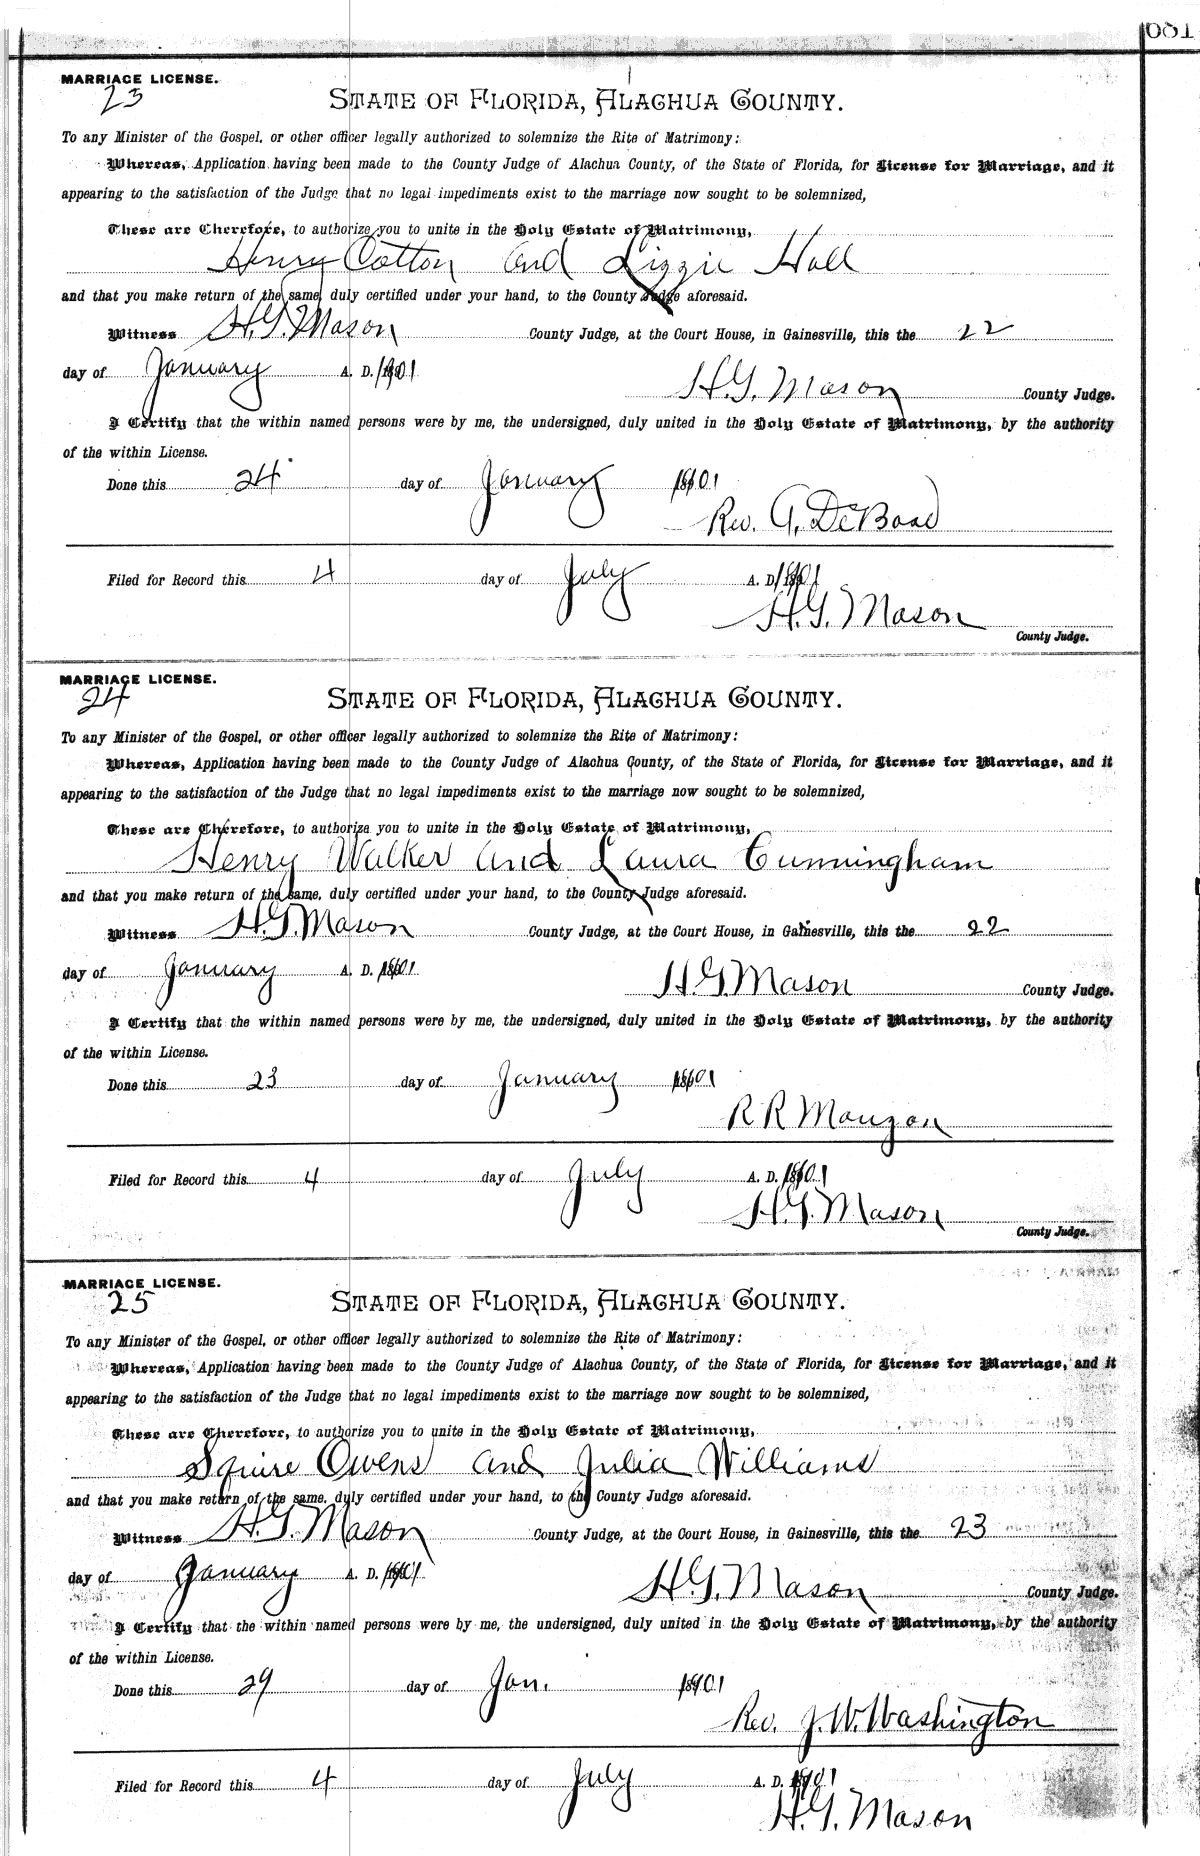 681
MARRIAGE LICENSE.
23
STATE OF FLORIDA, ALACHUA COUNTY.
To any Minister of the Gospel, or other officer legally authorized to solemnize the Rite of Matrimony:
Whereas, Application having been made to the County Judge of Alachua County, of the State of Florida, for License for Marriage, and it
appearing to the satisfaction of the Judge that no legal impediments exist to the marriage now sought to be solemnized,
These are Therefore, to authorize you to unite in the Holy Estate of Matrimony,
Henry Cotton and Lizzie Hall
and that you make return of the same, duly certified under your hand, to the County Judge aforesaid.
Witness H.G. Mason County Judge, at the Court House, in Gainesville, this the 22
day of January A. D. 1901
H.G. Mason County Judge.
I Certify that the within named persons were by me, the undersigned, duly united in the Holy Estate of Matrimony, by the authority
of the within License.
Done this 24 day of January 1901
Rev. G. DeBose
Filed for Record this 4 day of July A. D. 1901
H.G. Mason
County Judge.
MARRIAGE LICENSE.
24
STATE OF FLORIDA, ALACHUA COUNTY.
To any Minister of the Gospel, or other officer legally authorized to solemnize the Rite of Matrimony:
Whereas, Application having been made to the County Judge of Alachua County, of the State of Florida, for License for Marriage, and it
appearing to the satisfaction of the Judge that no legal impediments exist to the marriage now sought to be solemnized,
These are Therefore, to authorize you to unite in the Holy Estate of Matrimony,
Henry Walker and Laura Cunningham
and that you make return of the same, duly certified under your hand, to the County Judge aforesaid.
Witness H.G. Mason County Judge, at the Court House, in Gainesville, this the 22
day of January A. D. 1901
H.G. Mason County Judge.
I Certify that the within named persons were by me, the undersigned, duly united in the Holy Estate of Matrimony, by the authority
of the within License.
Done this 23 day of January 1901
R R Mouzon
Filed for Record this 4 day of July A. D. 1901
H.G. Mason
County Judge.
MARRIAGE LICENSE.
25
STATE OF FLORIDA, ALACHUA COUNTY.
To any Minister of the Gospel, or other officer legally authorized to solemnize the Rite of Matrimony:
Whereas, Application having been made to the County Judge of Alachua County, of the State of Florida, for License for Marriage, and it
appearing to the satisfaction of the Judge that no legal impediments exist to the marriage now sought to be solemnized,
These are Therefore, to authorize you to unite in the Holy Estate of Matrimony,
Squire Owens and Julia Williams
and that you make return of the same, duly certified under your hand, to the County Judge aforesaid.
Witness H.G. Mason County Judge, at the Court House, in Gainesville, this the 23
day of January A. D. 1901
H.G. Mason County Judge.
I Certify that the within named persons were by me, the undersigned, duly united in the Holy Estate of Matrimony, by the authority
of the within License.
Done this 29 day of Jan. 1901
Rev. J. W. Washington
Filed for Record this 4 day of July A. D. 1901
H.G. Mason